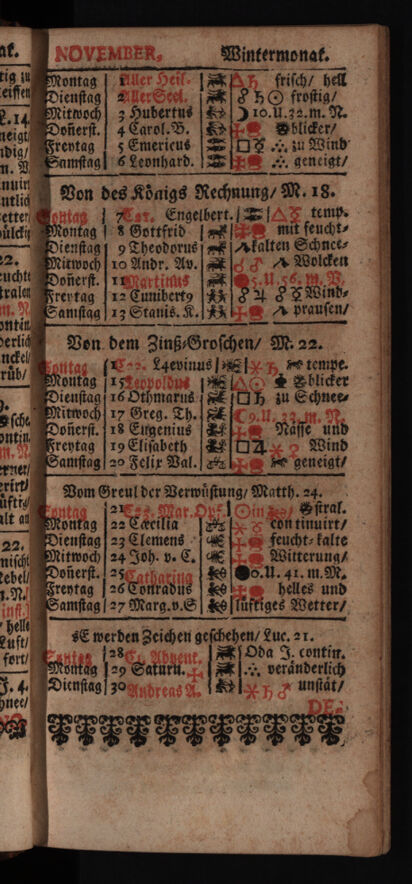 NOVEMBER, Wintermonat.
Montag 1 Aller Heil. △♄ frisch/ hell
Dienstag 2 Aller Seel. ☌♄☉ frostig/
Mitwoch 3 Hubertus ☽10.U.32.m.N.
Doñerst. 4 Carol.B. Gblicker/
Freytag 5 Emericus □☿ ∴ zu Wind
Samstag 6 Leonhard. ∴ geneigt/
Von des Königs Rechnung/ M. 18.
Sontag 7 Engelbert. △☿ temp.
Montag 8 Gottfrid mit feucht-
Dienstag 9 Theodorus kalten Schnee-
Mitwoch 10 Andr. Av. Wolcken
Doñerst. 11 Martinus 5.U.56.m.V.
Freytag 12 Cunibert9 ☌♃ ☌☿ Wind-
Samstag 13 Stanis. K. prausen/
Von dem Zinß-Groschen/ M. 22.
Sontag Lævinus ⚹♄ tempe.
Montag 15 Leopoldus △☉ Gblicker
Dienstag 16 Othmarus □♄ zu Schnee/
Mitwoch 17 Greg. Th. ☾9.U.33.m.N.
Doñerst. 18 Eugenius Nässe und
Freytag 19 Elisabeth □♃ ⚹☿ Wind
Samstag 20 Felix Val. geneigt/
Vom Greul der Verwüstung/ Matth. 24.
Sontag 21 Mar. Opf. ☉in Gstral.
Montag 22 Cæcilia ⚹☿ continuirt/
Dienstag 23 Clemens feucht-kalte
Mitwoch 24 Joh. v. C. Witterung/
Doñerst. 25 Catharina 0.U.41.m.N.
Freytag 26 Conradus helles und
Samstag 27 Marg.v.S lüftiges Wetter/
sE werden Zeichen geschehen/ Luc. 21.
Sontag 28 Advent. Oda J. contin.
Montag 29 Saturn. ∴ veränderlich
Dienstag 30 Andreas A. ⚹♄♂ unstät/
DE-